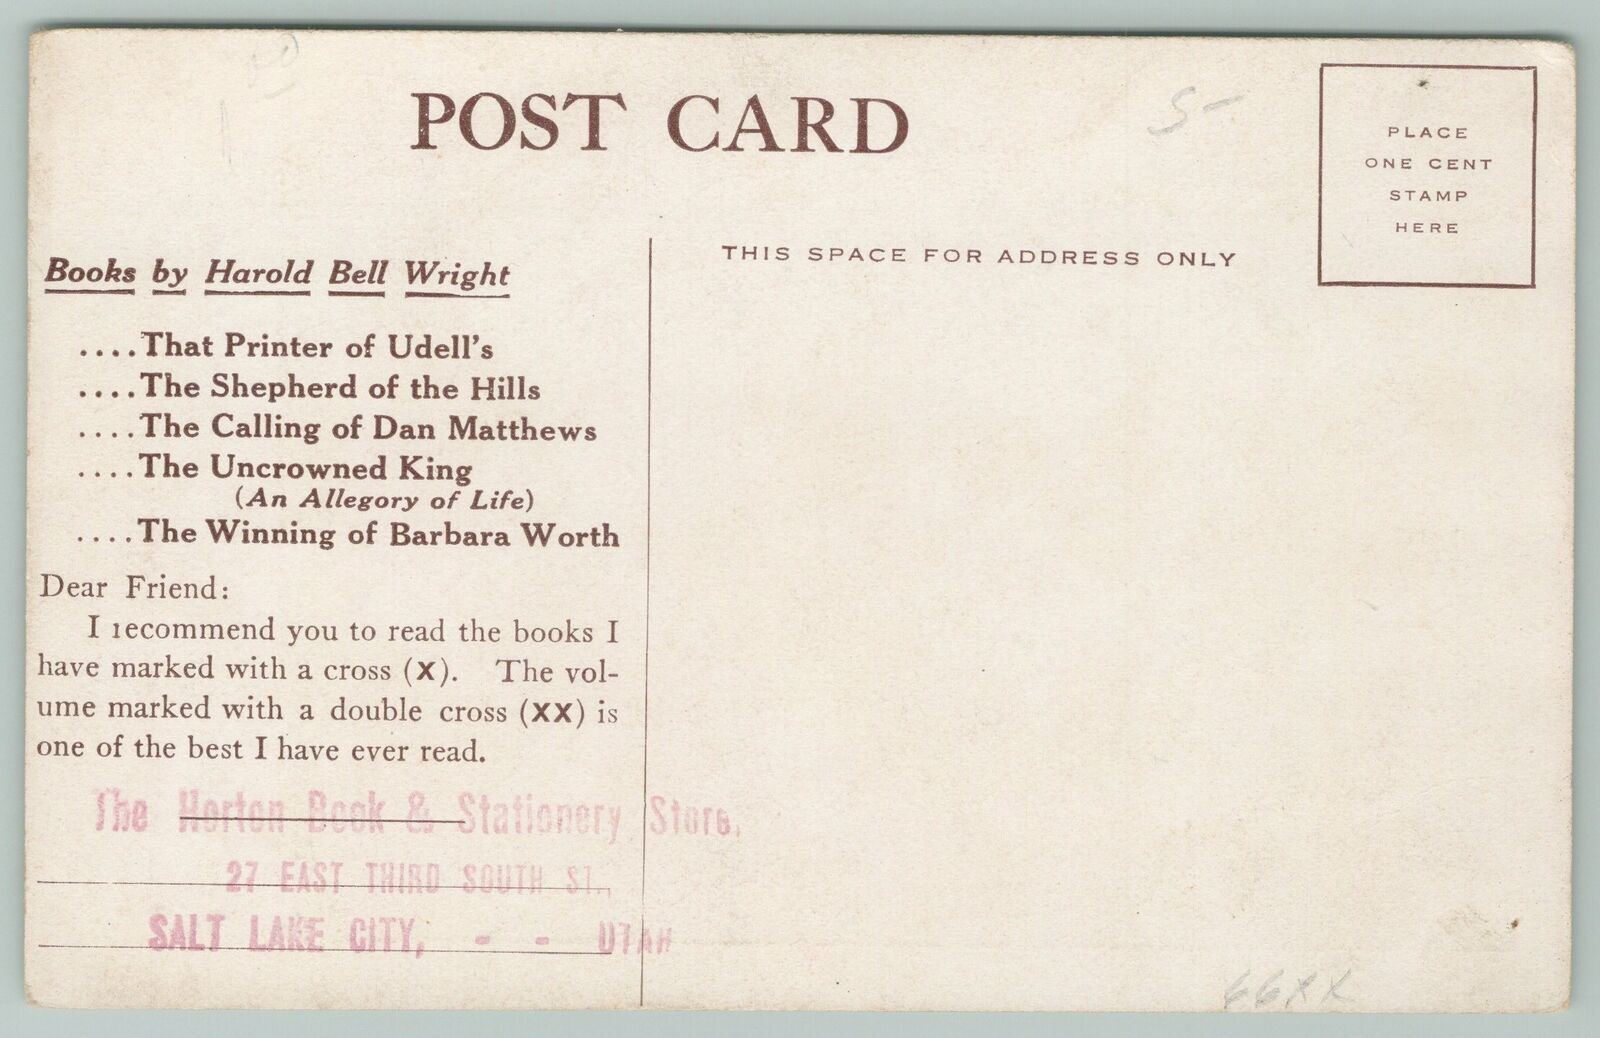 POST CARD
5-
PLACE
ONE CENT
STAMP
HERE
THIS SPACE FOR ADDRESS ONLY
Books by Harold Bell Wright
....That Printer of Udell's
....The Shepherd of the Hills
....The Calling of Dan Matthews
....The Uncrowned King
(An Allegory of Life)
....The Winning of Barbara Worth
Dear Friend:
I recommend you to read the books I
have marked with a cross (X). The vol-
ume marked with a double cross (XX) is
one of the best I have ever read.
The Horton Book & Stationery Store,
27 EAST THIRD SOUTH ST.,
SALT LAKE CITY, - - UTAH
66XX